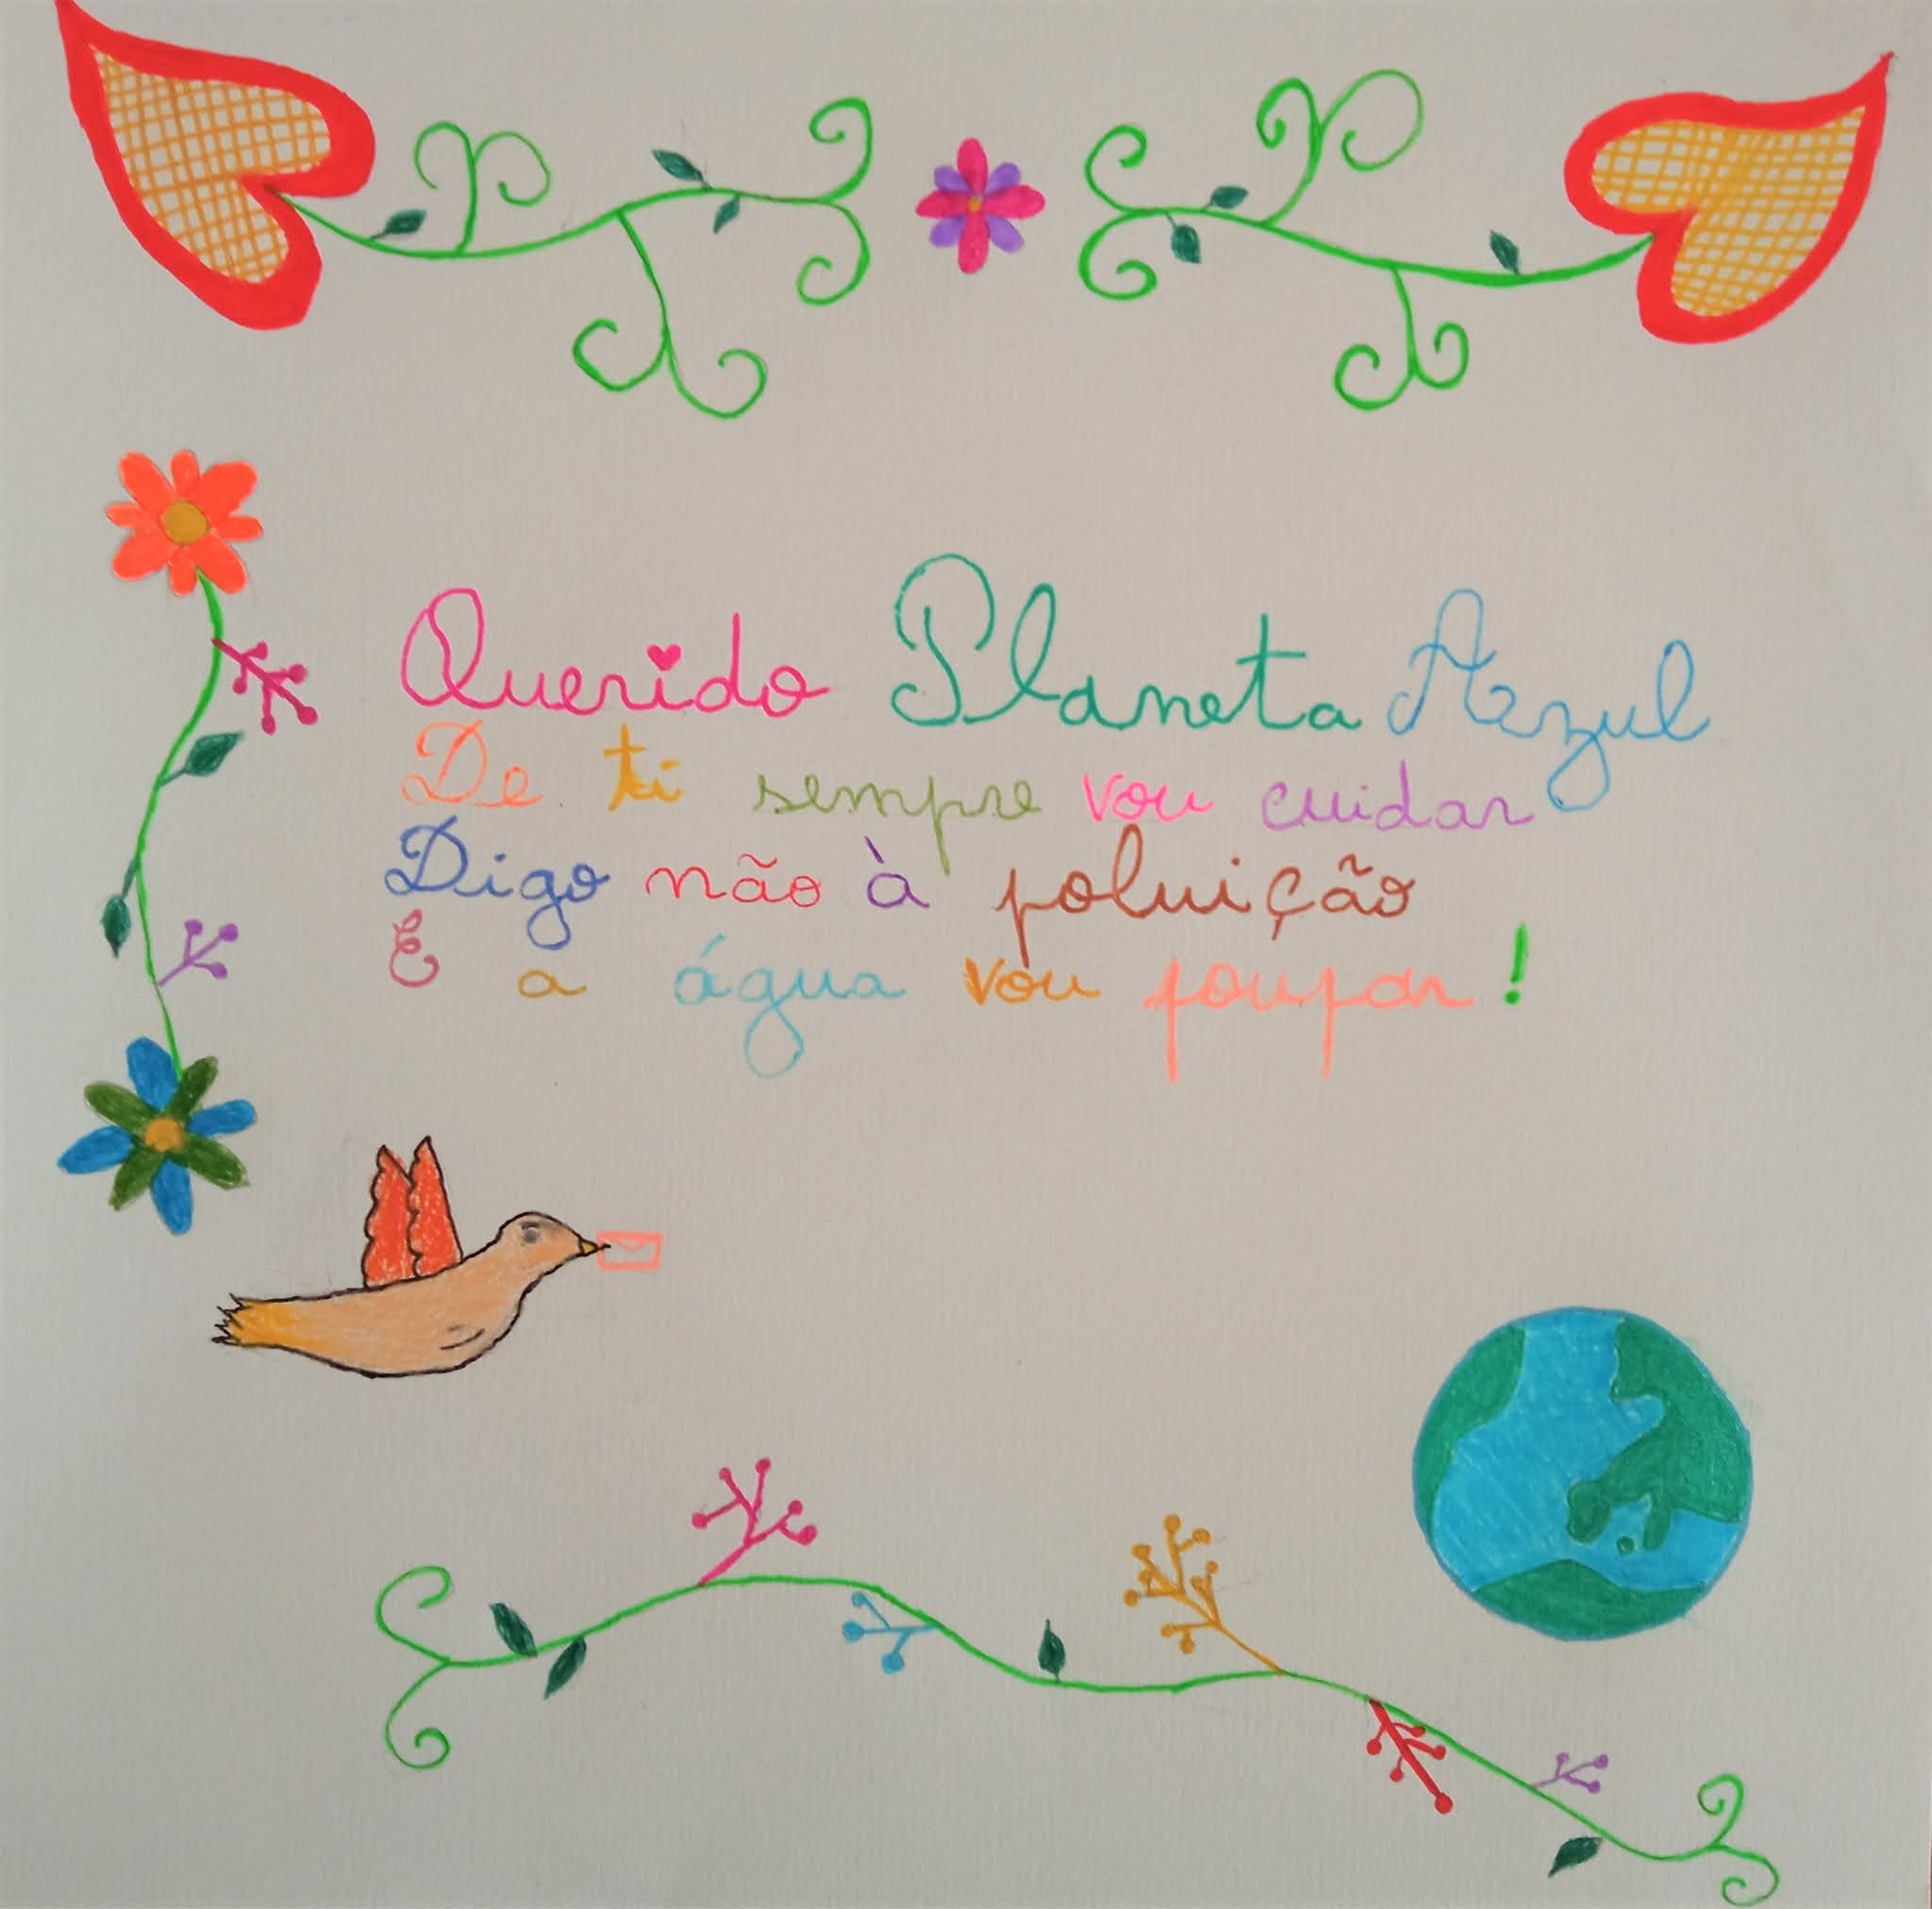 Querido Planeta Azul
De ti sempre vou cuidar
Digo não à poluição
E a água vou poupar!